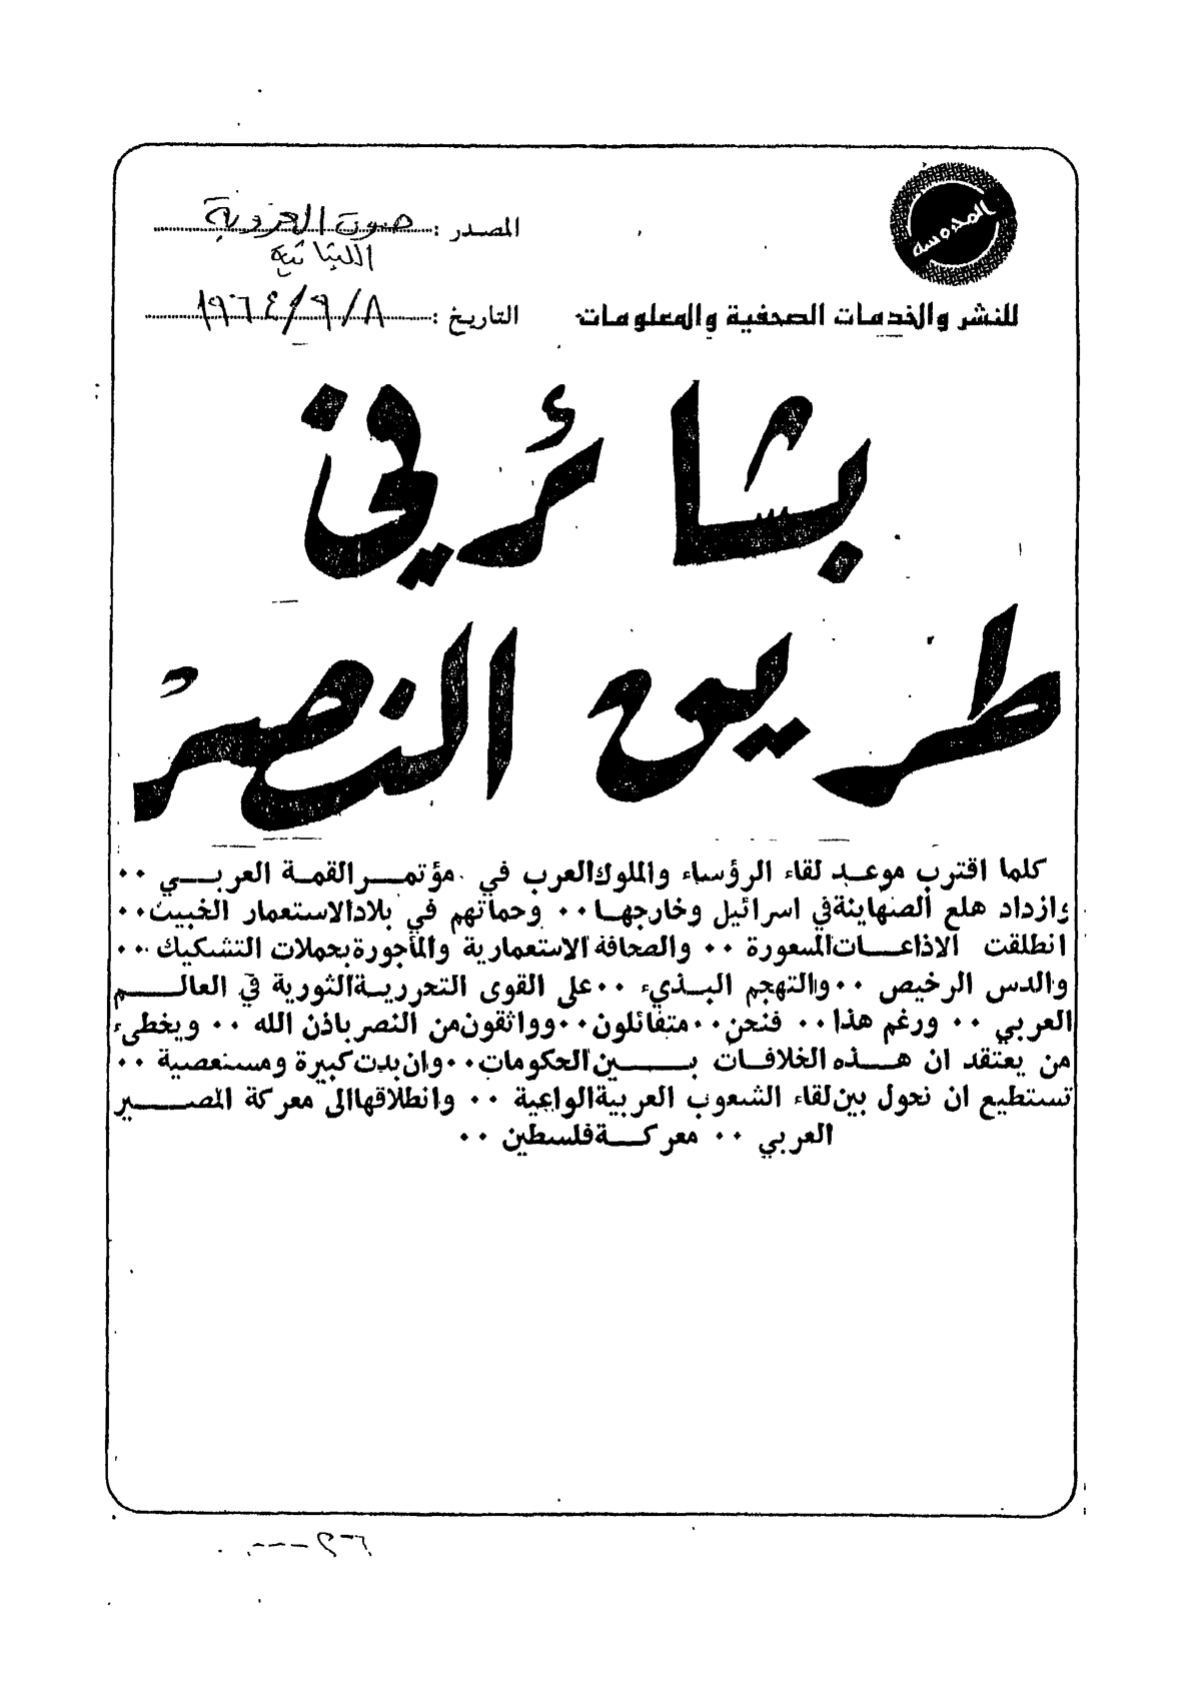 المدوسه
المصدر : صوت العروبة
اللبنانية
للنشر والخدمات الصحفية والمعلومات
التاريخ : ١٩٦٤/٩/٨
بشائر في
طريق النصر
كلما اقترب موعد لقاء الرؤساء والملوك العرب في مؤتمر القمة العربي ٠٠
وازداد هلع الصهاينة في اسرائيل وخارجها ٠٠ وحماتهم في بلاد الاستعمار الخبيث ٠٠
انطلقت الاذاعات المسعورة ٠٠ والصحافة الاستعمارية والمأجورة بحملات التشكيك ٠٠
والدس الرخيص ٠٠ والتهجم البذيء ٠٠ على القوى التحررية الثورية في العالم
العربي ٠٠ ورغم هذا ٠٠ فنحن ٠٠ متفائلون ٠٠ وواثقون من النصر باذن الله ٠٠ ويخطىء
من يعتقد ان هذه الخلافات بين الحكومات ٠٠ وان بدت كبيرة ومستعصية ٠٠
تستطيع ان تحول بين لقاء الشعوب العربية الواعية ٠٠ وانطلاقها الى معركة المصير
العربي ٠٠ معركة فلسطين ٠٠